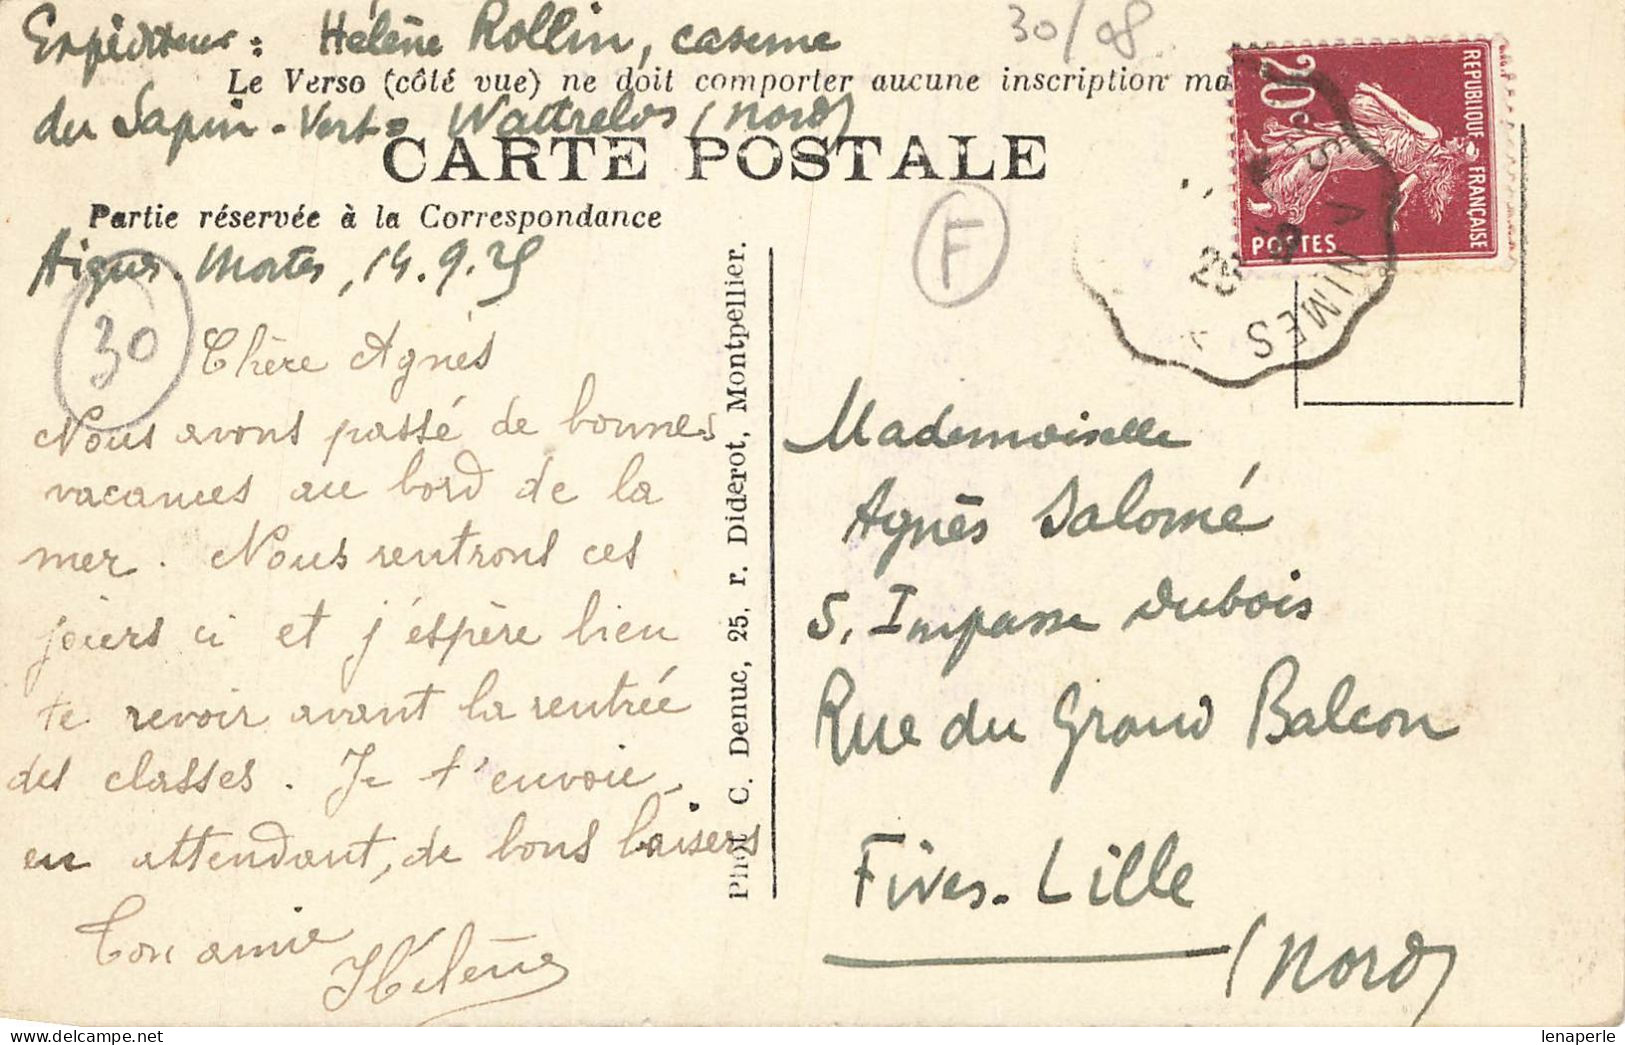 Expéditeur : Hélène Rollin, caserne
Le Verso (côté vue) ne doit comporter aucune inscription ma
du Sapin-Vert- Wattrelos (Nord)
CARTE POSTALE
Partie réservée à la Correspondance
Aigues-Mortes, 14.9.25
Chère Agnès
Nous avons passé de bonnes
vacances au bord de la
mer. Nous rentrons ces
jours ci et j'espère bien
te revoir avant la rentrée
des classes. Je t'envoie
en attendant, de bons baisers
Ton amie
Hélène
30
30/08
F
Phot. C. Denuc, 25, r. Diderot, Montpellier.
REPUBLIQUE FRANÇAISE
20 c
POSTES
A NIMES
Mademoiselle
Agnès Salomé
5, Impasse Dubois
Rue du Grand Balcon
Fives-Lille
(Nord)
lenaperle